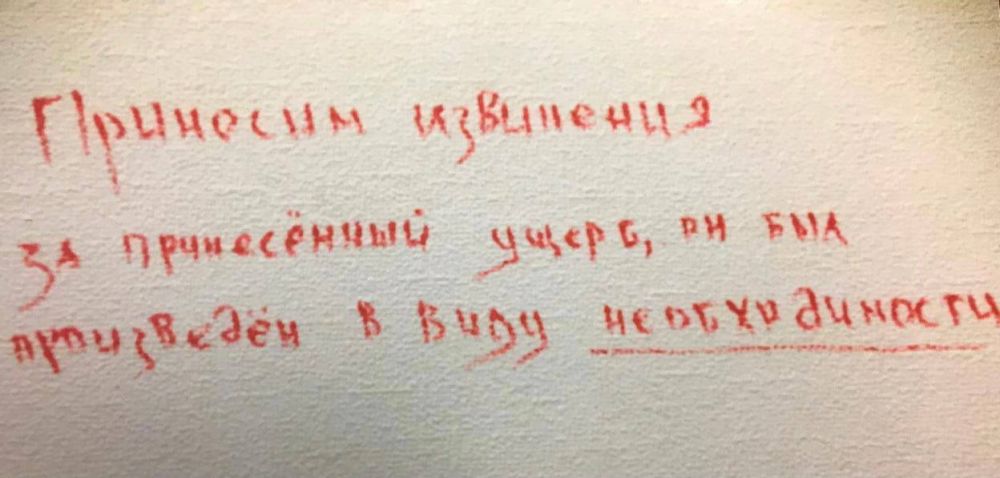 Приносим извинения
за принесённый ущерб, он был
произведён в виду необходимости